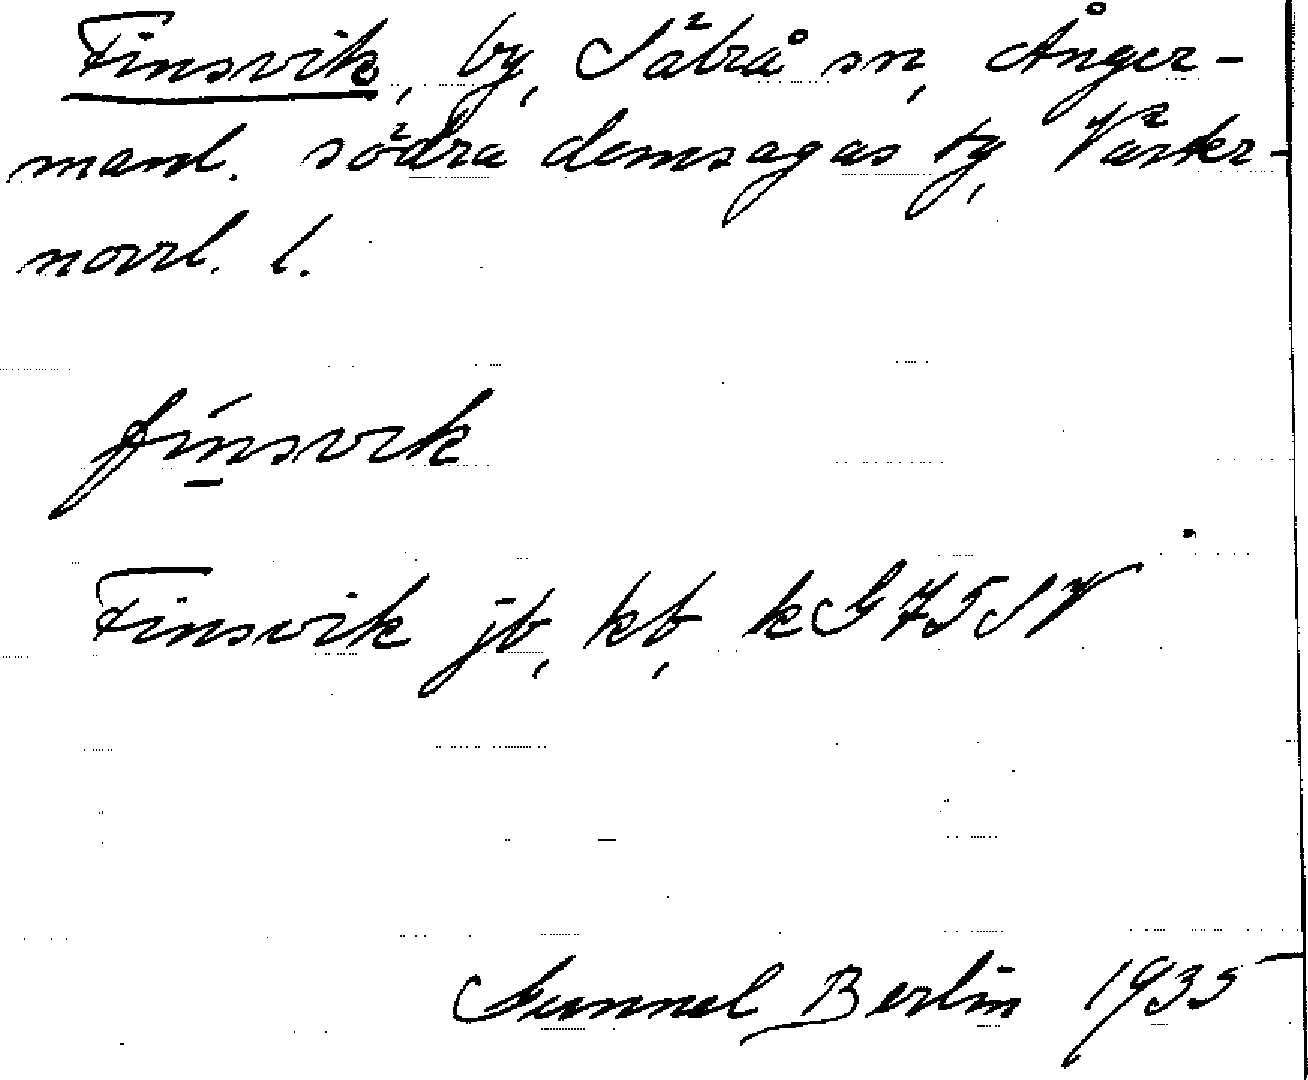 Finsvik, by, Säbrå sn, Ånger-
manl. södra domsagas tg, Väster-
norrl. l.
finsvik
Finsvik jb, kb, kG 75 SV
Gunnel Berlin 1935